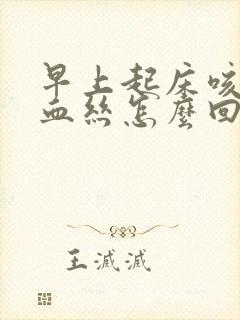 早上起床咳
血丝怎麼回
王滅滅